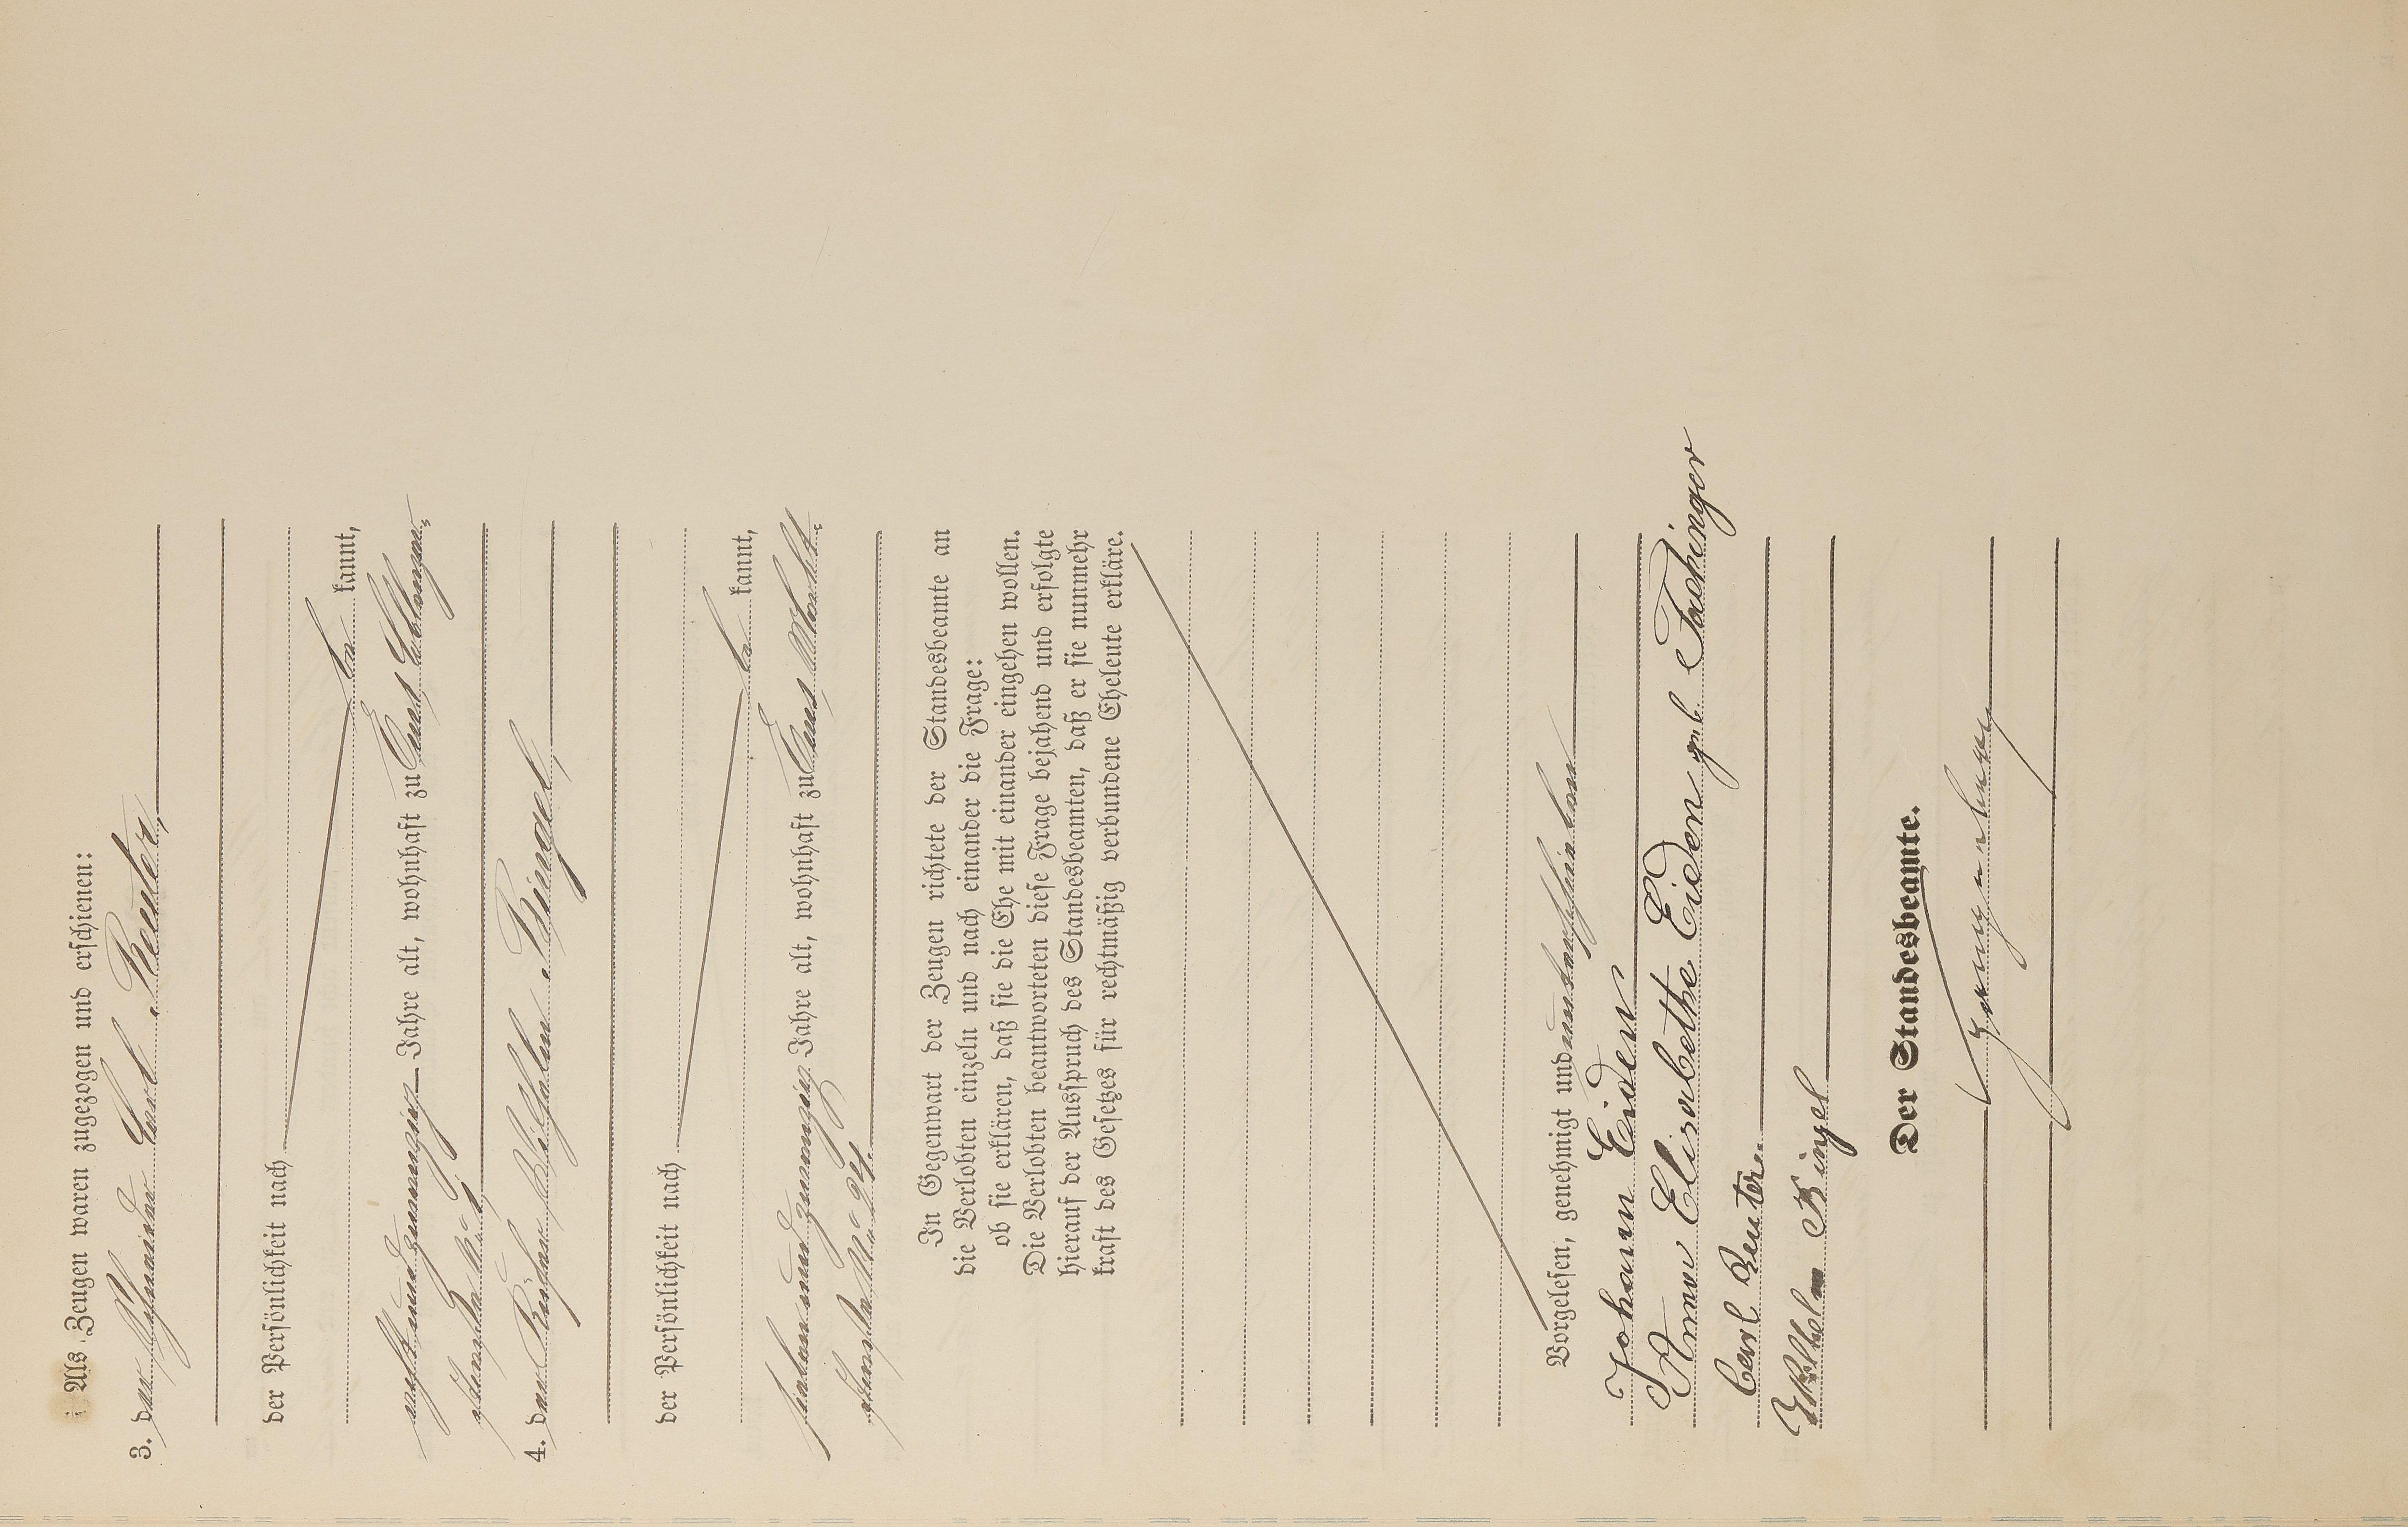 Als Zeugen waren zugezogen und erschienen:
3. der Schneider Carl Reuter,
der Persönlichkeit nach
be kannt,
acht und zwanzig Jahre alt, wohnhaft zu Ems,
4. der Wilhelm Bingel,
der Persönlichkeit nach
be kannt,
sieben und zwanzig Jahre alt, wohnhaft zu Ems,
No 94.
In Gegenwart der Zeugen richtete der Standesbeamte an
die Verlobten einzeln und nach einander die Frage:
ob sie erklären, daß sie die Ehe mit einander eingehen wollen.
Die Verlobten beantworteten diese Frage bejahend und erfolgte
hierauf der Ausspruch des Standesbeamten, daß er sie nunmehr
kraft des Gesetzes für rechtmäßig verbundene Eheleute erkläre.
Vorgelesen, genehmigt und unterschrieben
Johann Eiden
Anna Elisabethe Eiden geb. Fachinger
Carl Reuter.
Wilhelm Bingel
Der Standesbeamte.